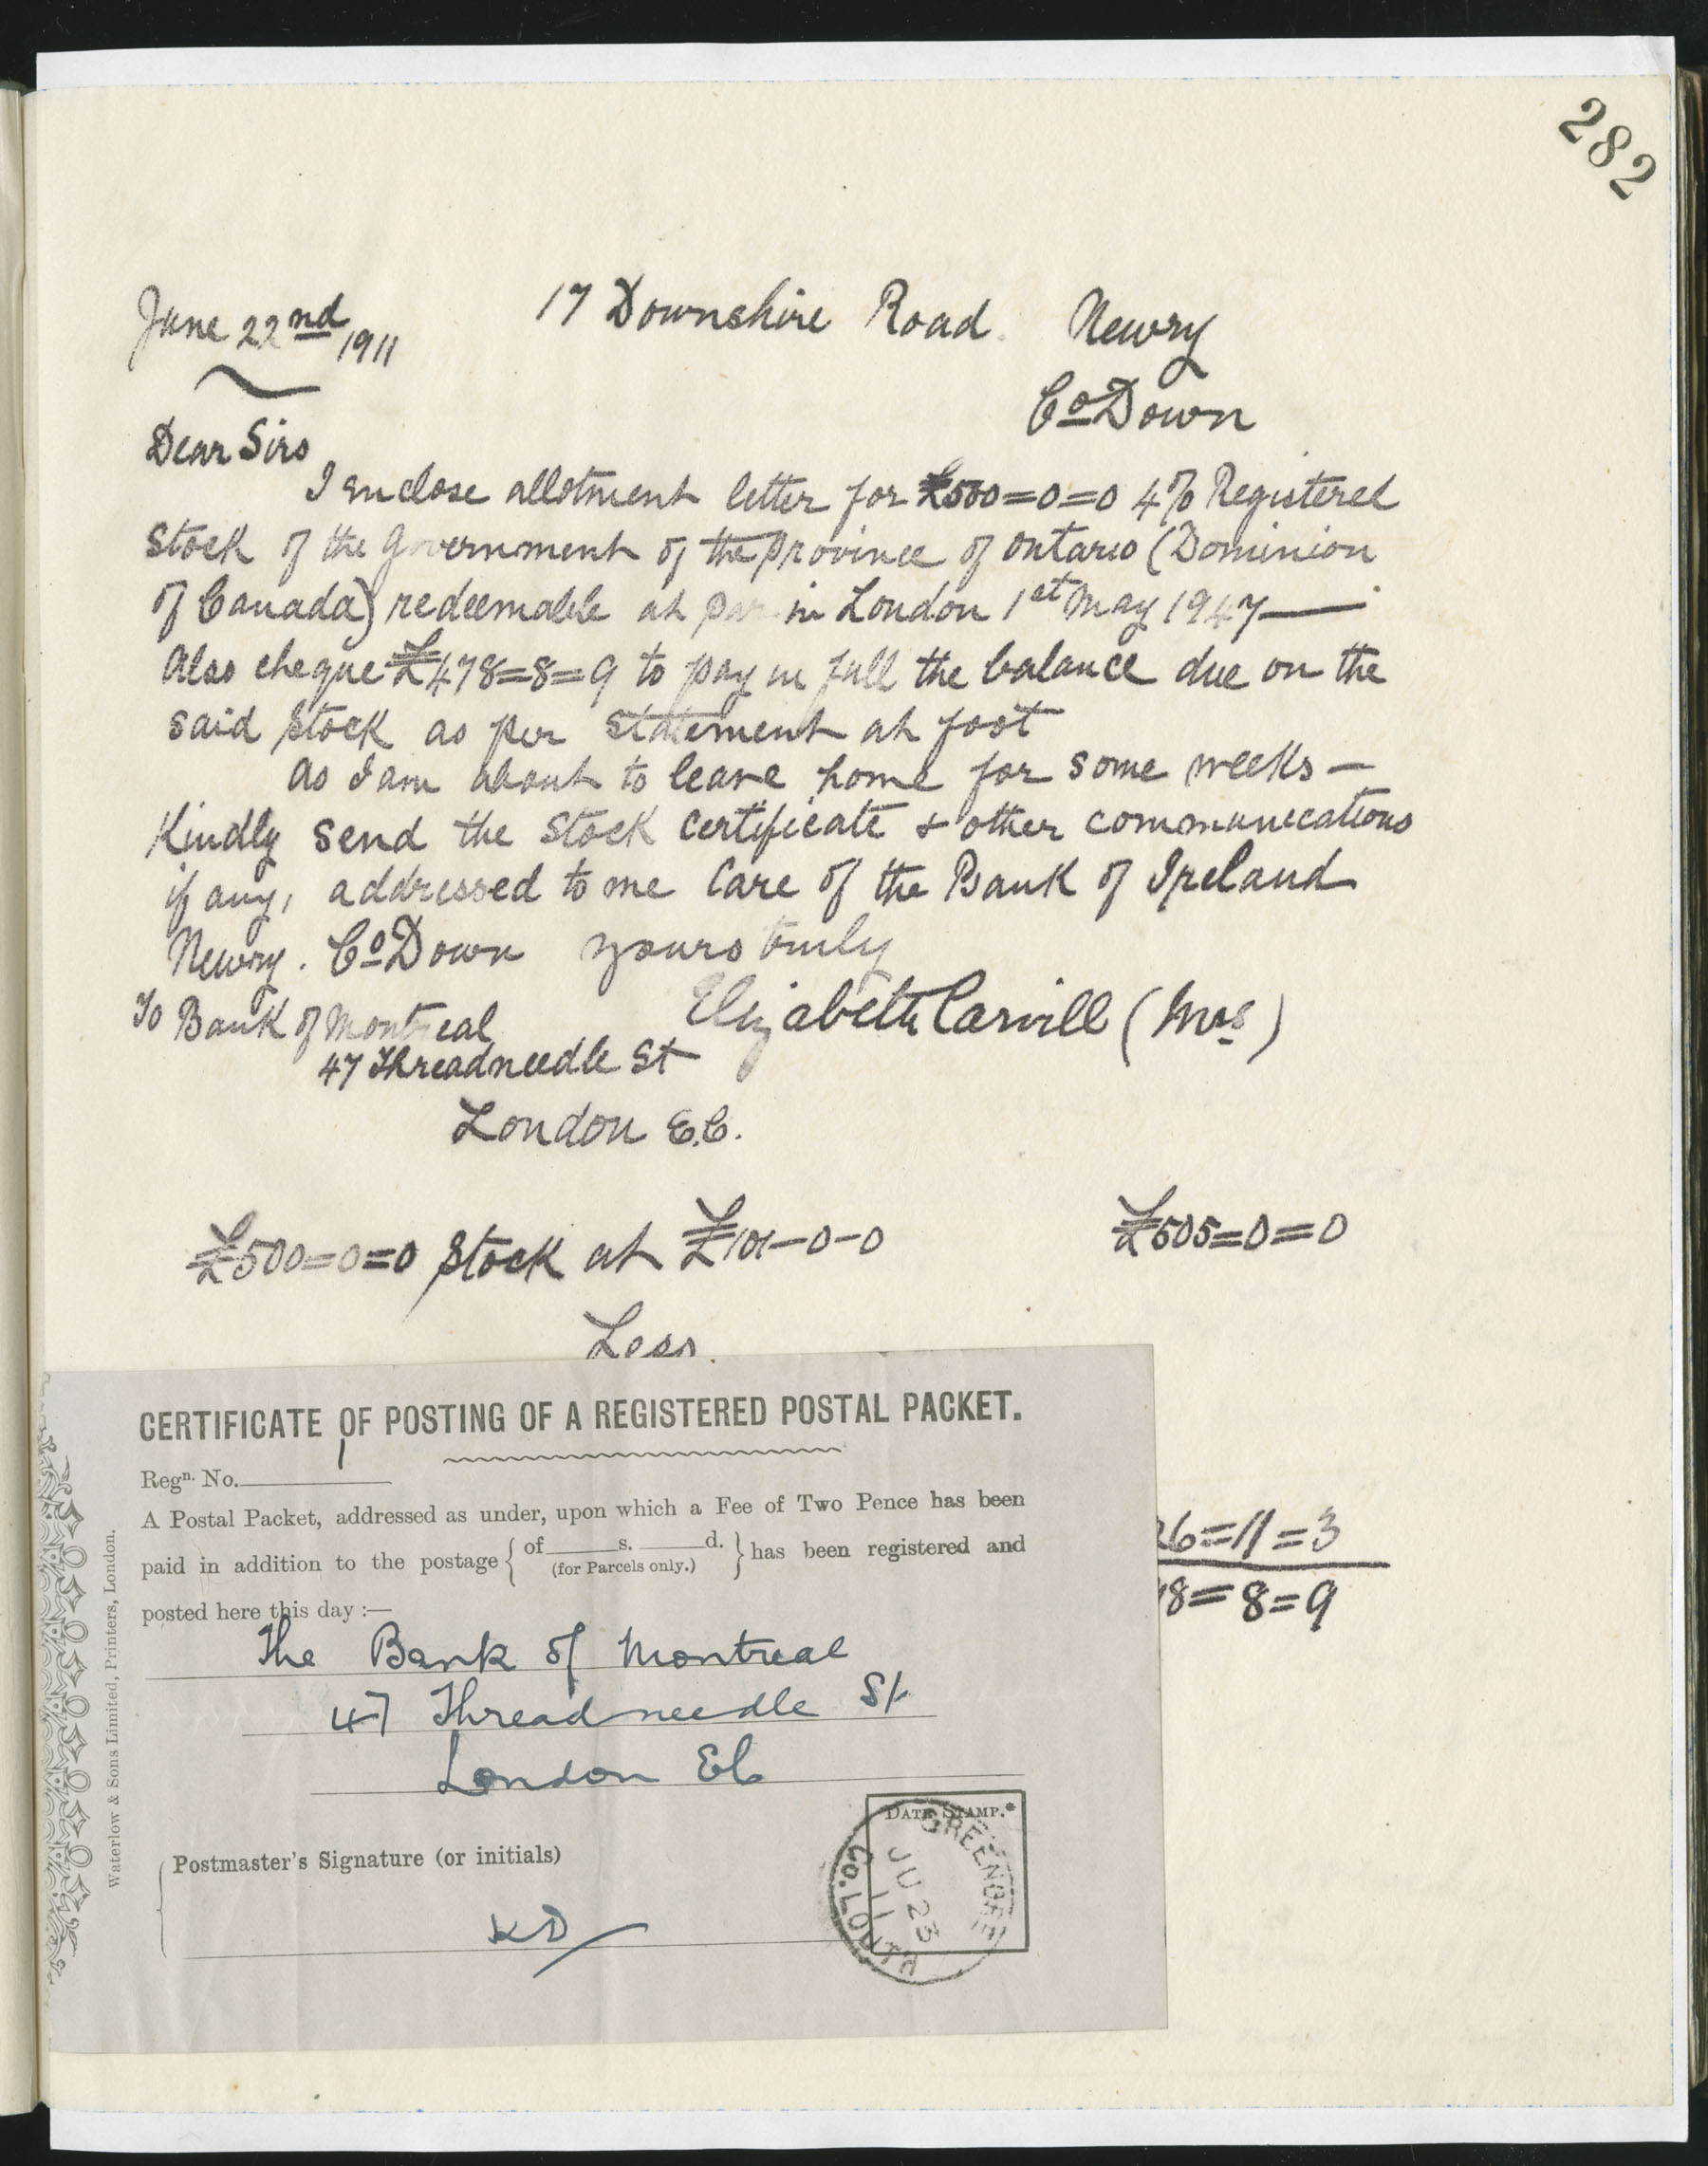 282
June 22nd 1911
17 Downshire Road Newry
Co Down
Dear Sirs
I enclose allotment letter for £500=0=0 4% Registered
Stock of the Government of the Province of Ontario (Dominion
of Canada) redeemable at par in London 1st May 1947
Also cheque £478=8=9 to pay in full the balance due on the
said stock as per statement at foot
As I am about to leave home for some weeks—
Kindly send the stock certificate & other communications
if any, addressed to me Care of the Bank of Ireland
Newry. Co Down yours truly
Elizabeth Carvill (Mrs)
To Bank of Montreal
47 Threadneedle St
London E.C.
£500=0=0 Stock at £101-0-0 £505=0=0
Less
26=11=3
78=8=9
CERTIFICATE OF POSTING OF A REGISTERED POSTAL PACKET.
Regn. No.
A Postal Packet, addressed as under, upon which a Fee of Two Pence has been
paid in addition to the postage { of s. d. (for Parcels only.) } has been registered and
posted here this day :—
The Bank of Montreal
47 Threadneedle St
London EC
DATE STAMP.*
GREENORE
JU 23
11
CO. LOUTH
Postmaster's Signature (or initials)
KD
Waterlow & Sons Limited, Printers, London.